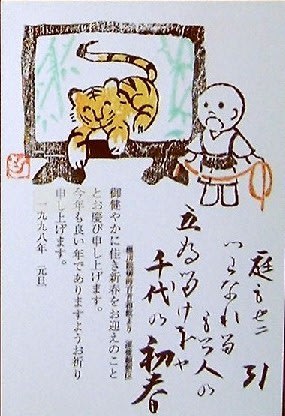 庭もせに 引
つらなれる
もろ人の
千代の初春
御健やかに佳き新春をお迎えのこと
とお慶び申し上げます。
今年も良い年でありますようお祈り
申し上げます。
一九九八年 元旦